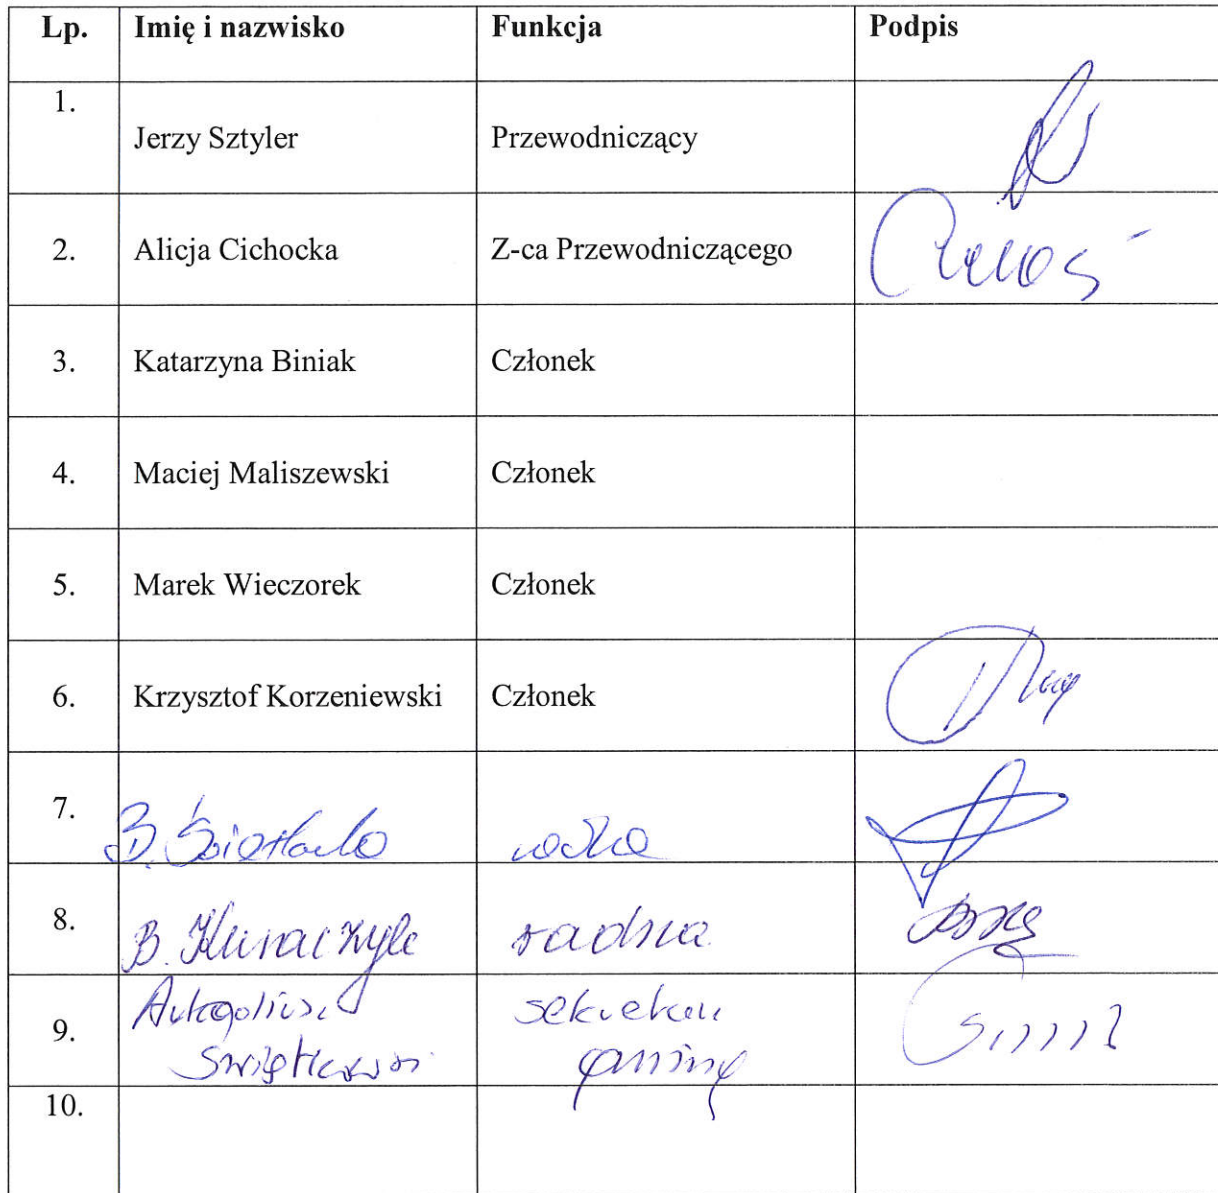 Lp. Imię i nazwisko Funkcja Podpis
1.
Jerzy Sztyler Przewodniczący
2. Alicja Cichocka Z-ca Przewodniczącego
3. Katarzyna Biniak Członek
4. Maciej Maliszewski Członek
5. Marek Wieczorek Członek
6. Krzysztof Korzeniewski Członek
7. B.
8. B. radna
9. sekretarz
gminy
10.